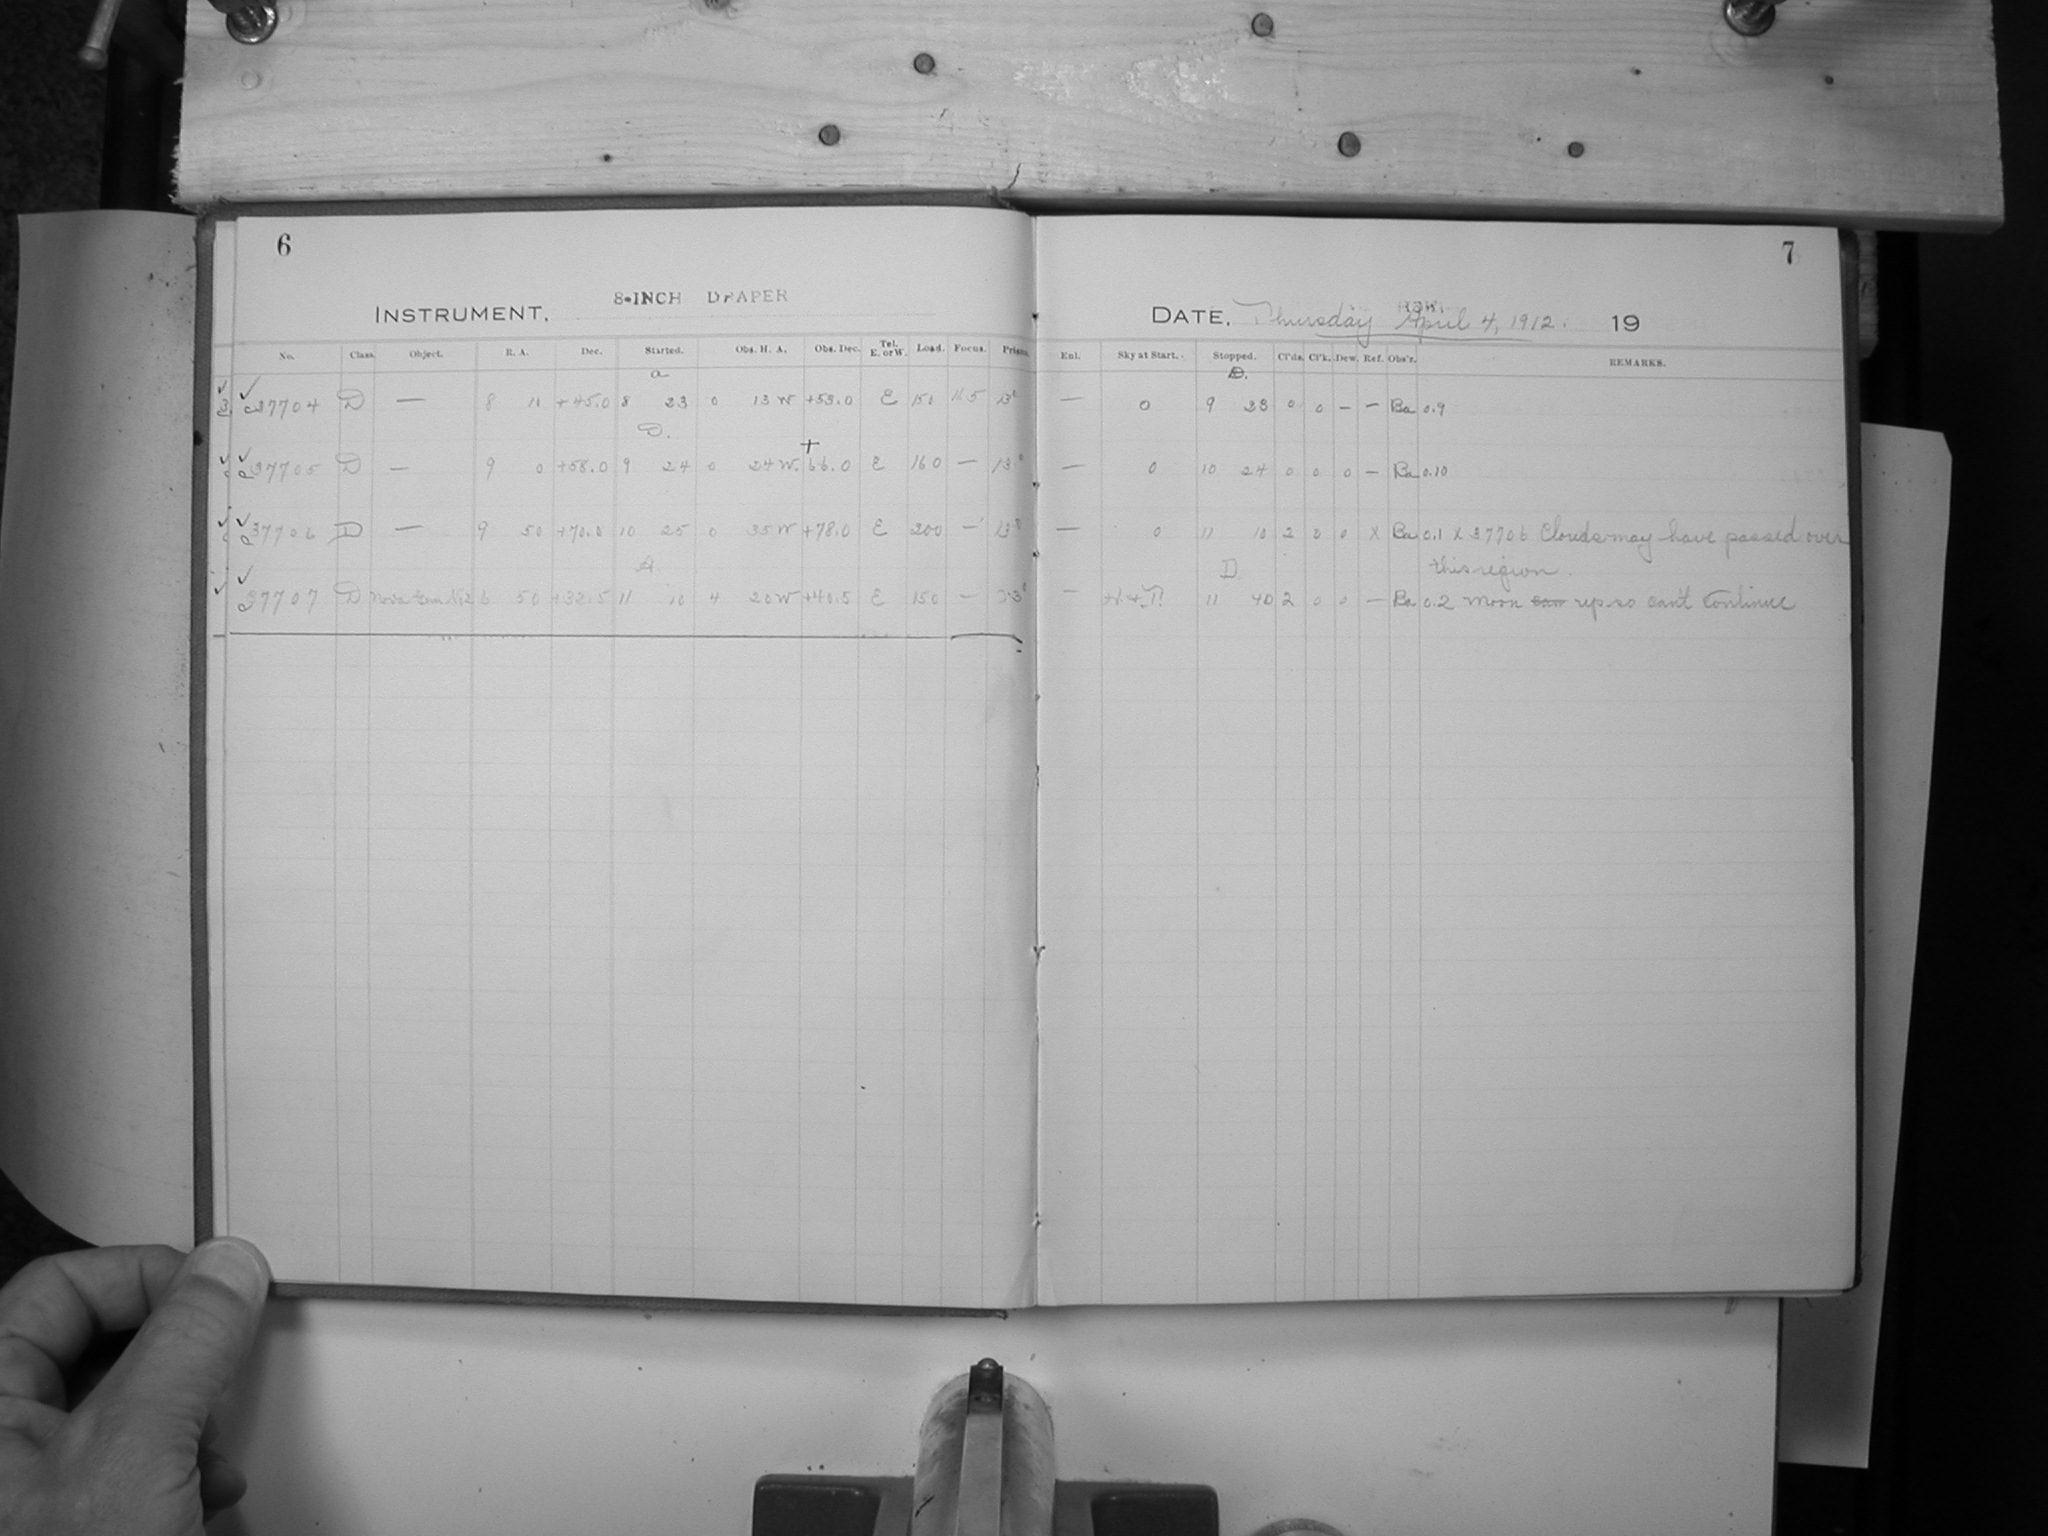 6
7
8-INCH DRAPER
INSTRUMENT.
DATE. Thursday April 4, 1912. 19
No. Class. Object. R. A. Dec. Started. Obs. H. A. Obs. Dec. Tel. E. or W. Load. Focus. Prism. Enl. Sky at Start. Stopped. Cl'ds. Cl'k. Dew. Ref. Obs'r. REMARKS.
a D.
37704 D — 8 10 +45.0 8 23 0 13 W +53.0 E 150 11.5 13° — 0 9 23 0 0 — — Ba 0.9
D.
37705 D — 9 0 +58.0 9 24 0 24 W. +66.0 E 160 — 13° — 0 10 24 0 0 0 — Ba 0.10
37706 D — 9 50 +70.0 10 25 0 35 W +78.0 E 200 — 13° — 0 11 10 2 0 0 X Ba 0.1 X 37706 Clouds may have passed over
A. D this region.
37707 D Nova Gem. 6 50 +32.5 11 10 4 20 W +40.5 E 150 — — 11 40 2 0 0 — Ba 0.2 Moon up so can't continue